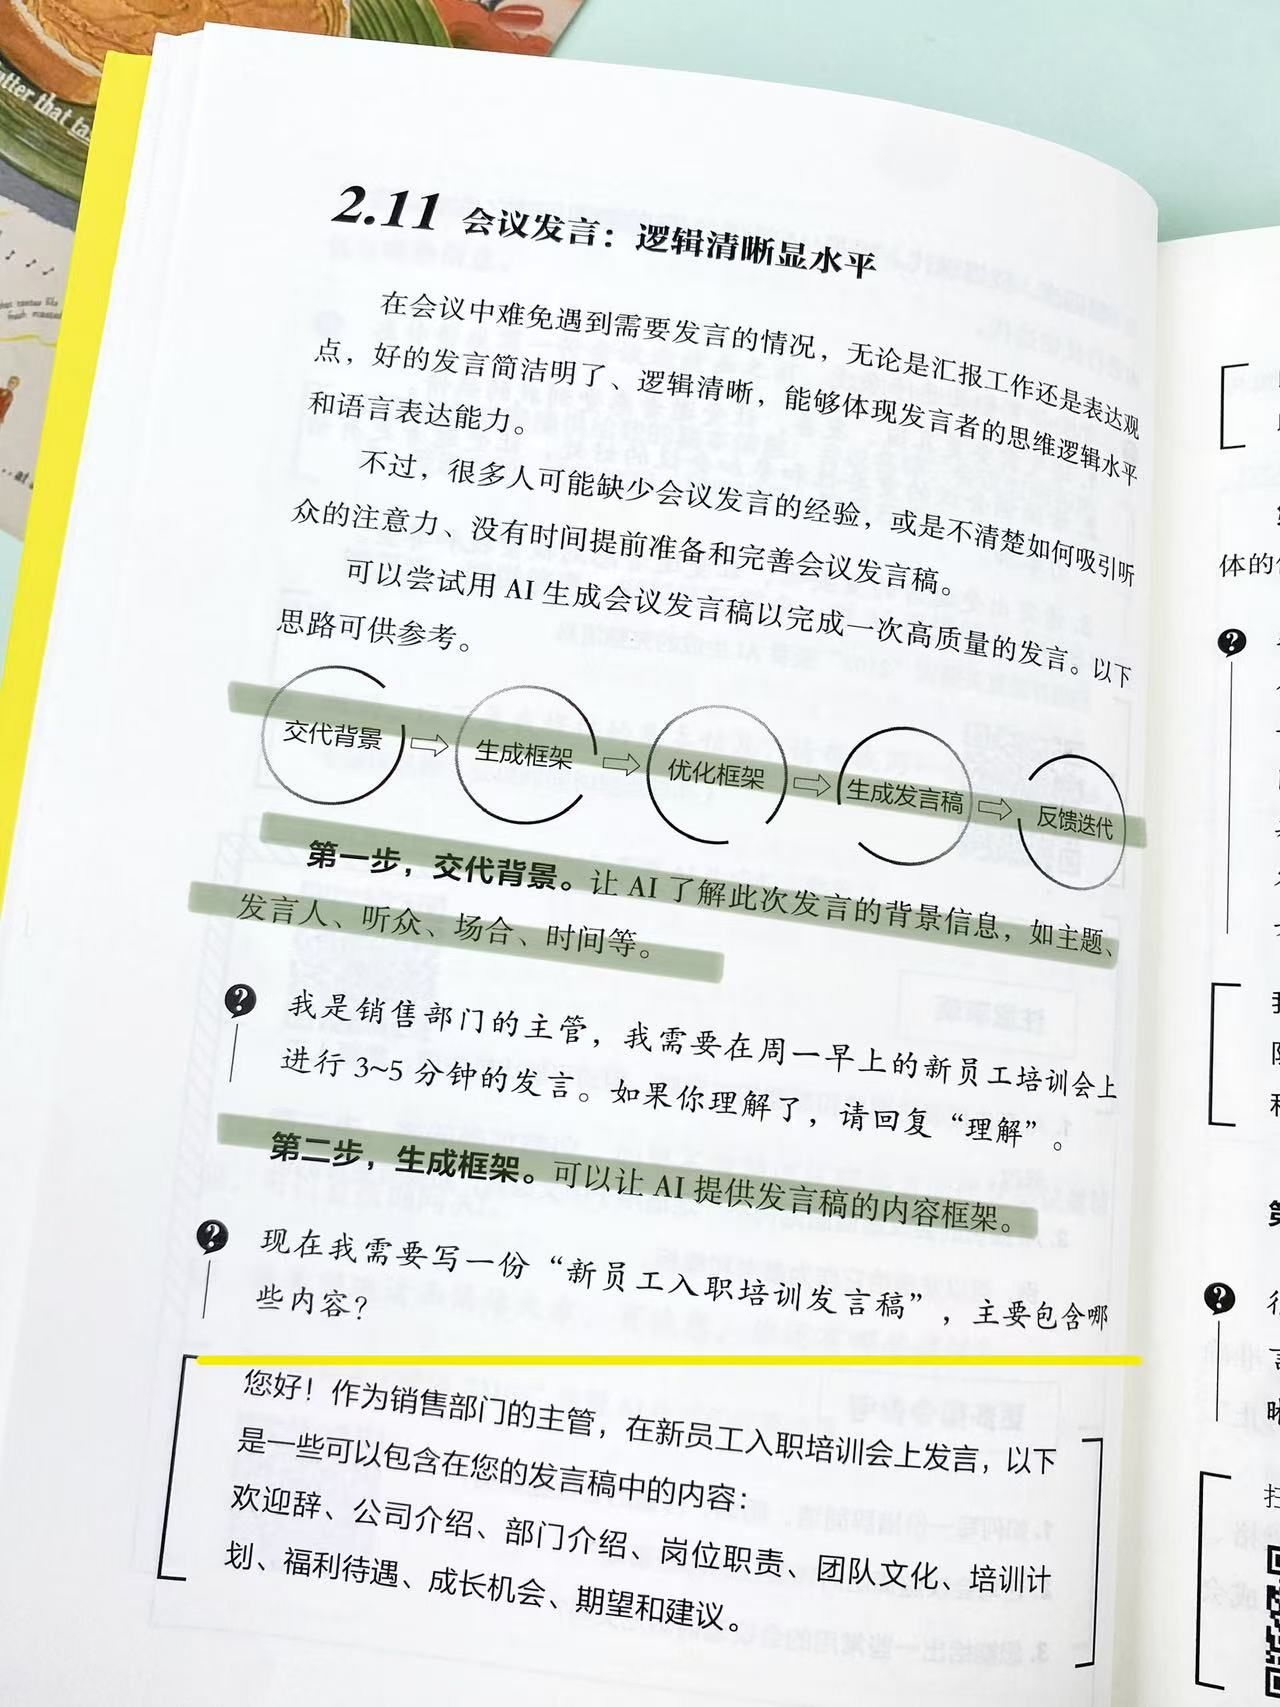 utter that ta
that tastes like
fresh roasted
2.11 会议发言：逻辑清晰显水平
在会议中难免遇到需要发言的情况，无论是汇报工作还是表达观
点，好的发言简洁明了、逻辑清晰，能够体现发言者的思维逻辑水平
和语言表达能力。
不过，很多人可能缺少会议发言的经验，或是不清楚如何吸引听
众的注意力、没有时间提前准备和完善会议发言稿。
可以尝试用 AI 生成会议发言稿以完成一次高质量的发言。以下
思路可供参考。
交代背景 生成框架 优化框架 生成发言稿 反馈迭代
第一步，交代背景。让 AI 了解此次发言的背景信息，如主题、
发言人、听众、场合、时间等。
我是销售部门的主管，我需要在周一早上的新员工培训会上
进行 3~5 分钟的发言。如果你理解了，请回复“理解”。
第二步，生成框架。可以让 AI 提供发言稿的内容框架。
现在我需要写一份“新员工入职培训发言稿”，主要包含哪
些内容？
您好！作为销售部门的主管，在新员工入职培训会上发言，以下
是一些可以包含在您的发言稿中的内容：
欢迎辞、公司介绍、部门介绍、岗位职责、团队文化、培训计
划、福利待遇、成长机会、期望和建议。
体的